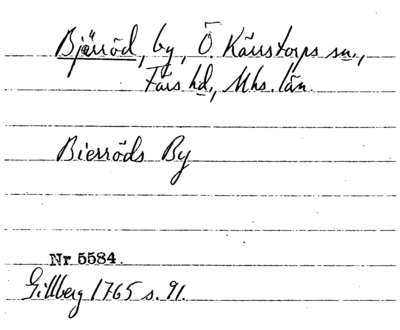 Bjärröd, by, Ö. Kärrstorps sn.,
Färs hd., Mhs. län.
Bierröds By
Nr 5584.
Gillberg 1765 s. 91.